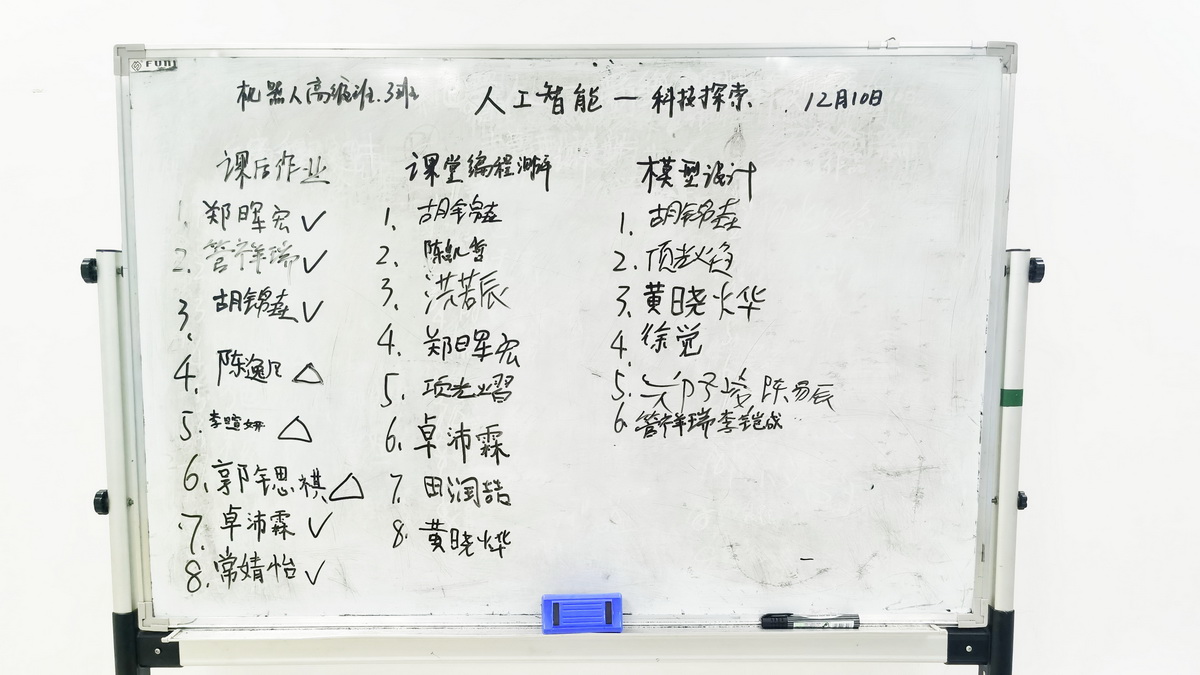 FUNI
机器人高级班.3班
人工智能一科技探索 12月10日
课后作业
1. 郑晖宏 ✓
2. 管祥瑞 ✓
3. 胡锦垚 ✓
4. 陈逸 △
5. 李暄妍 △
6. 郭锶祺 △
7. 卓沛霖 ✓
8. 常婧怡 ✓
课堂编程测评
1. 胡锦垚
2. 陈凯哲
3. 洪若辰
4. 郑晖宏
5. 项光熠
6. 卓沛霖
7. 田润喆
8. 黄晓烨
模型设计
1. 胡锦垚
2. 项
3. 黄晓烨
4. 徐觉
5. 陈易辰
6. 管祥瑞 李铠成